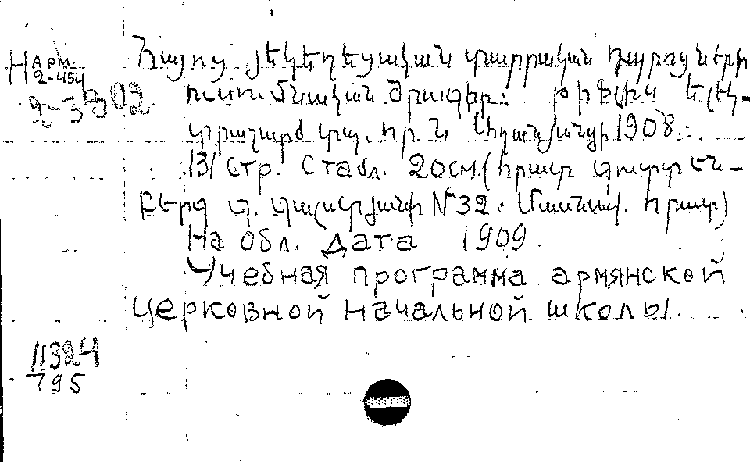 Н АРМ 2-454
2-3802
Հայոց յեկեղեցական տարրական դպրոցների
ուսումնական ծրագիր: թիֆլիս Ելեկ-
տրաշարժ տպ. օր. Ն Աղանյանցի 1908.
131 стр. с табл. 20см. (հրատ գուտտեն-
բերգ գ. գալստյանի №32. մանկավ. հրատ)
На обл. дата 1909.
Учебная программа армянской
церковной начальной школы.
11324
795